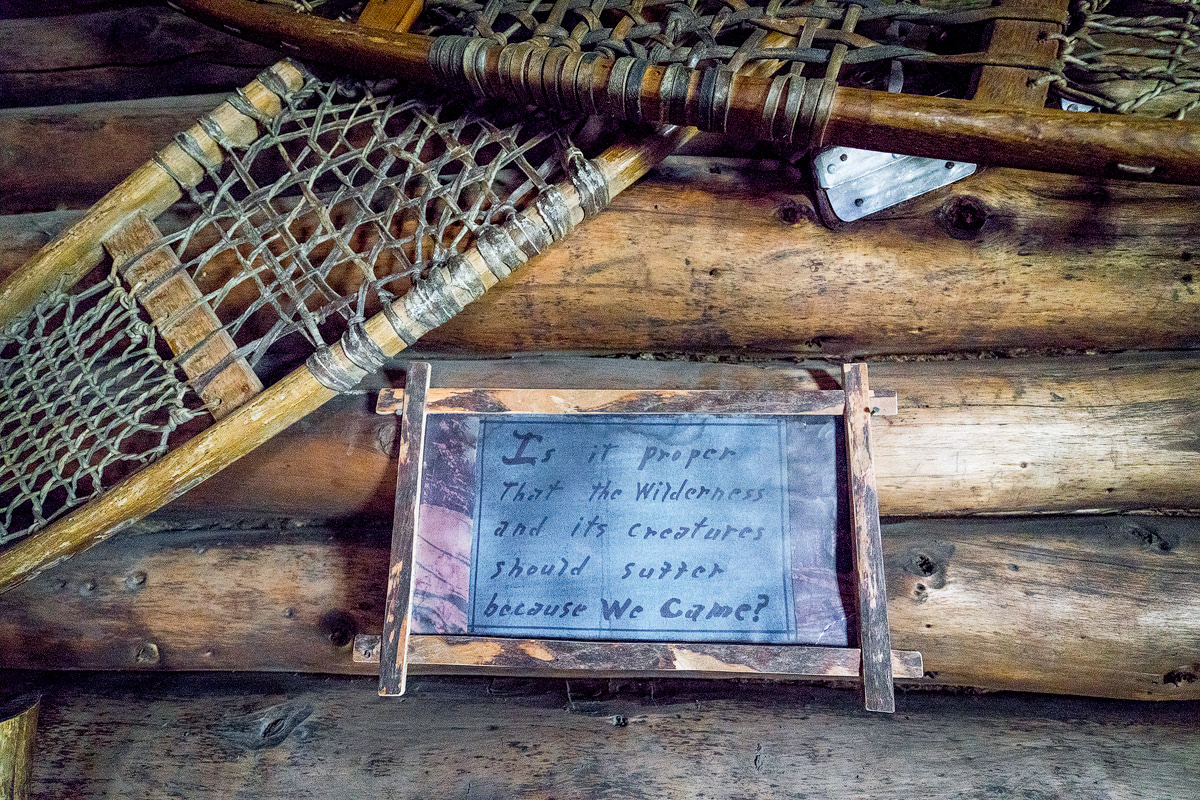 Is it proper
That the Wilderness
and its creatures
should suffer
because We Came?